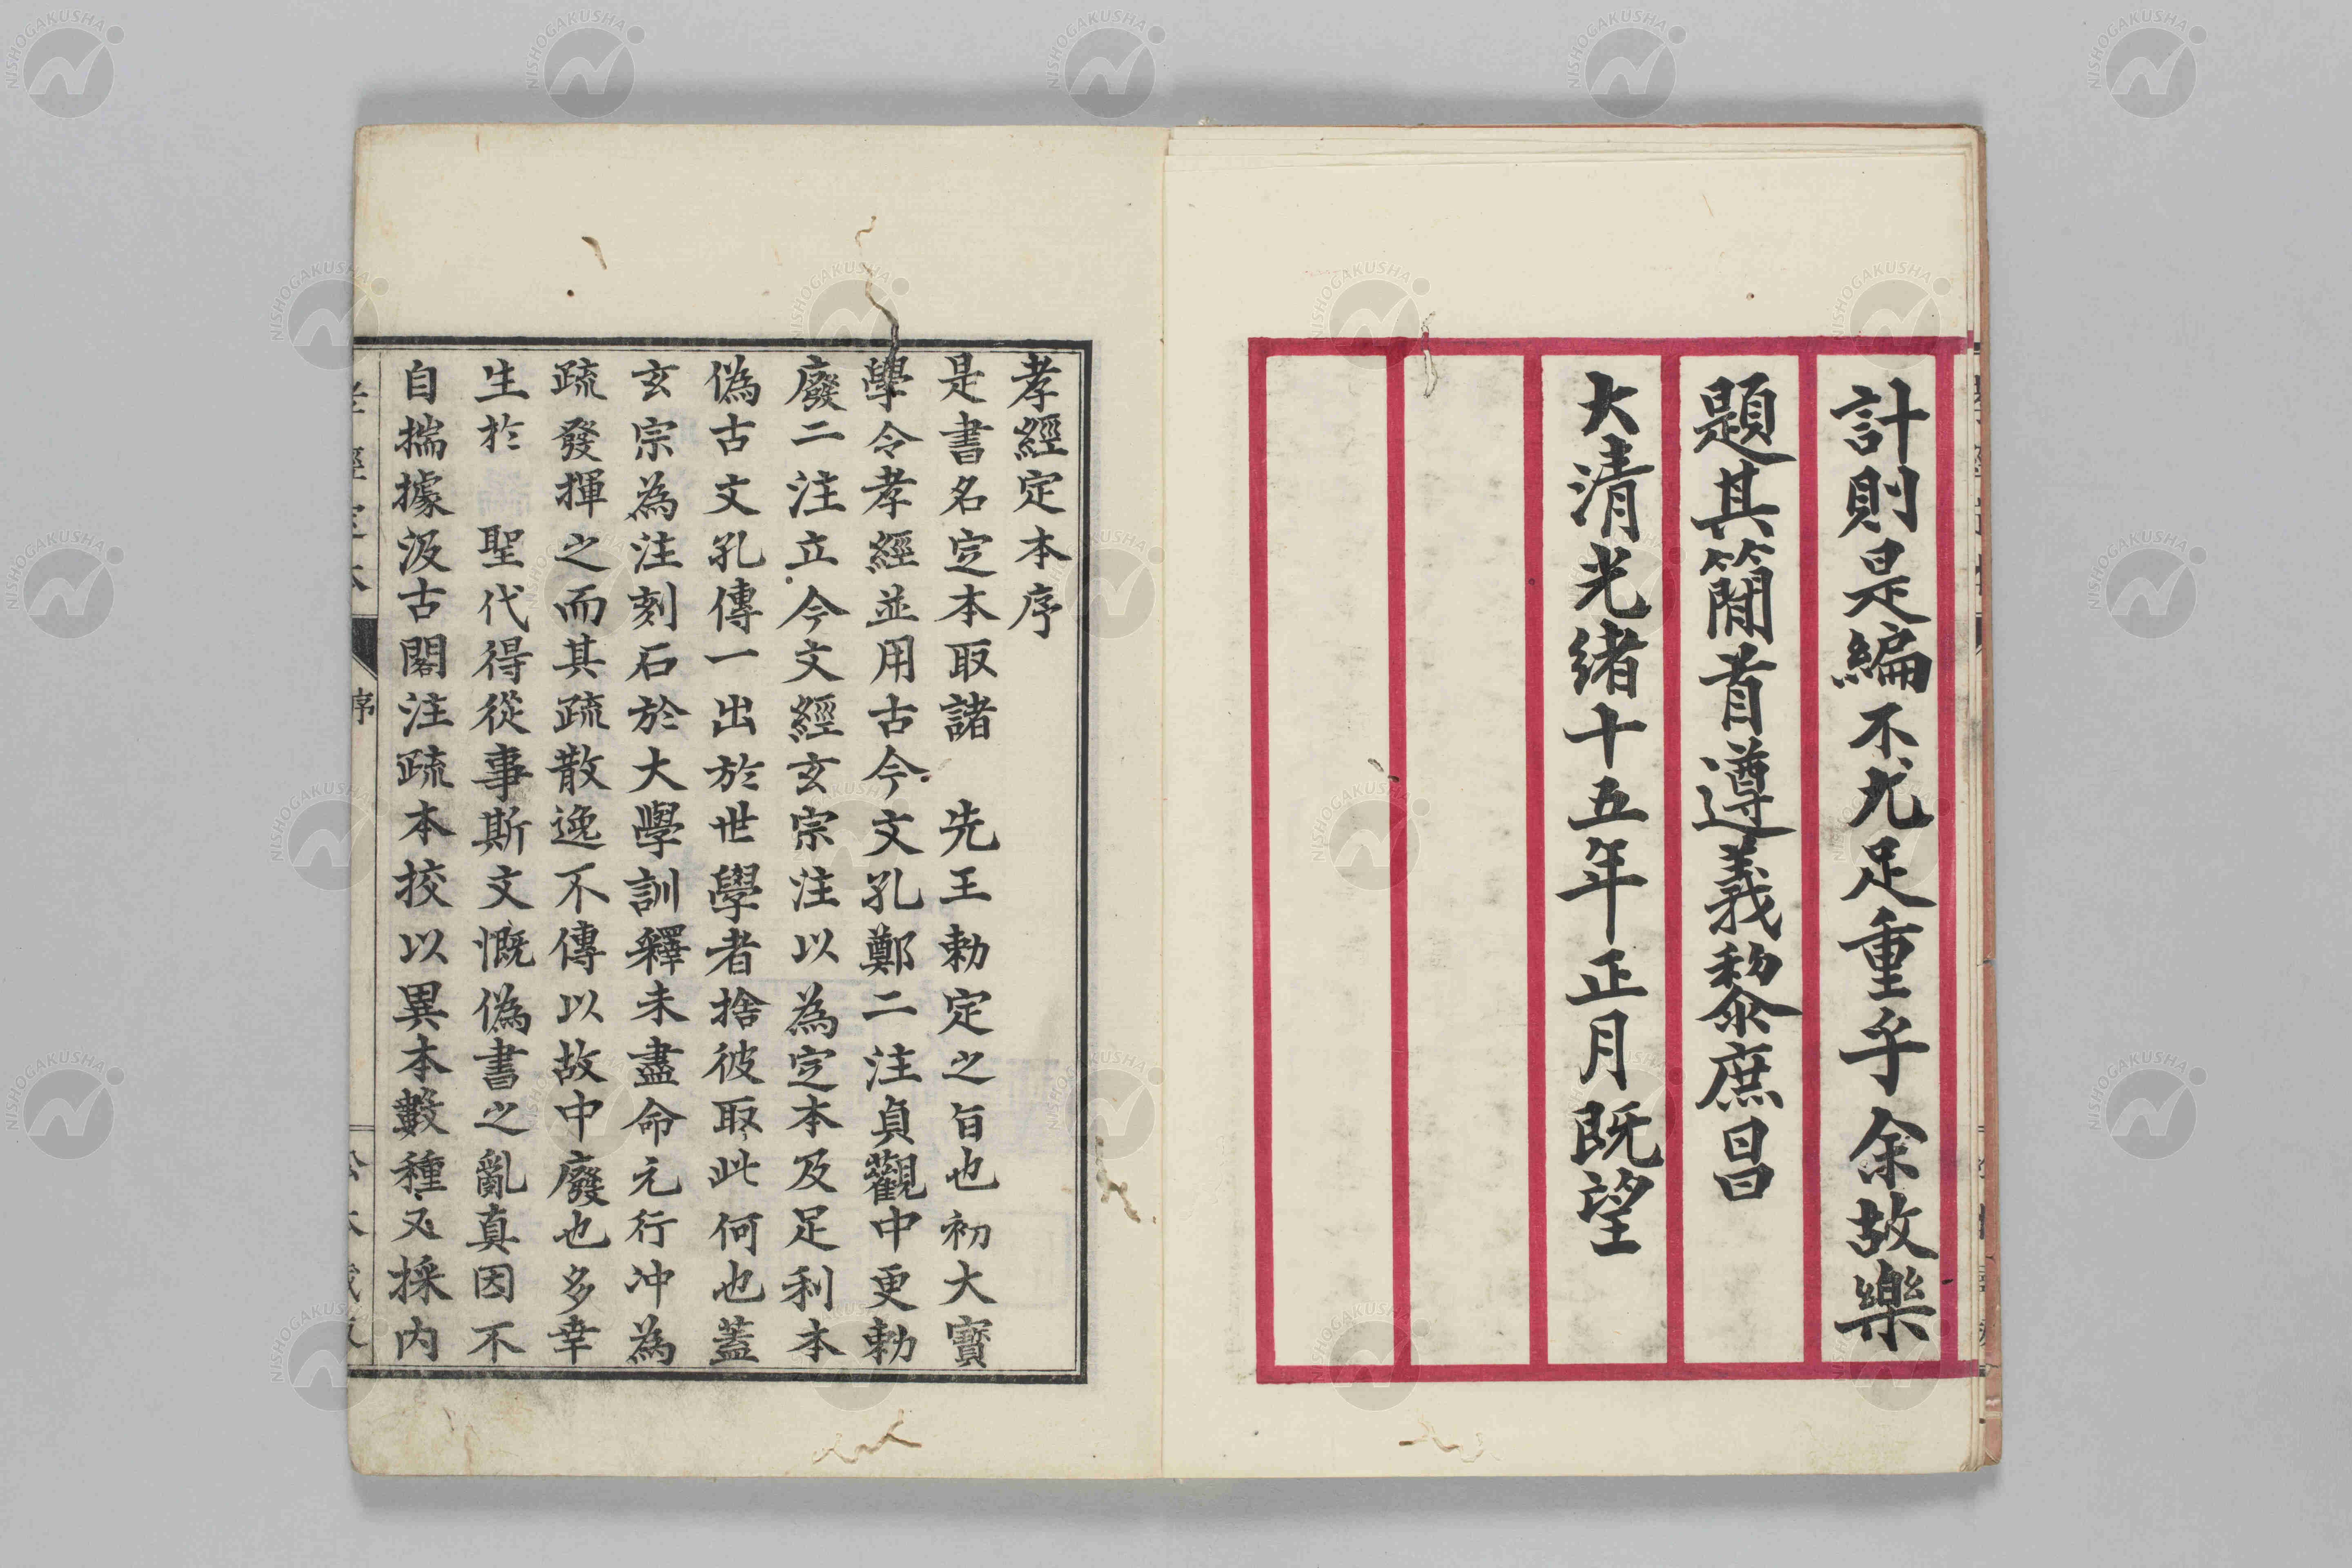 計則是編不尤足重乎余故樂
題其簡首遵義黎庶昌
大清光緒十五年正月既望
孝經定本序
是書名定本取諸　先王勅定之旨也初大寳
學令孝經並用古今文孔鄭二注貞觀中更勅
廢二注立今文經玄宗注以為定本及足利本
偽古文孔傳一出於世學者捨彼取此何也蓋
玄宗為注刻石於大學訓釋未盡命元行冲為
疏發揮之而其疏散逸不傳以故中廢也多幸
生於　聖代得從事斯文慨偽書之亂真因不
自揣據汲古閣注疏本挍以異本數種又採内
序
NISHOGAKUSHA